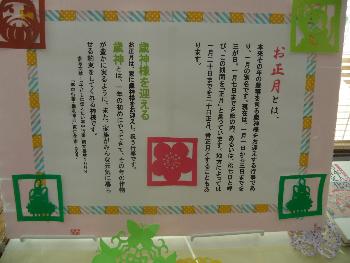 お正月とは、
本来その年の豊穣を司る歳神様をお迎えする行事であ
り、一月の別名です。現在は、一月一日から三日までを
三が日、一月七日までを松の内、あるいは、松七日と呼
び、この期間を「正月」と言っています。地方によっては
一月二十日までを二十日正月、骨正月とすることもあ
ります。
歳神様を迎える
お正月は、家に歳神様をお迎えし、祝う行事です。
歳神とは、一年の初めにやってきて、その年の作物
が豊かに実るように、また、家族がみんな元気に暮ら
せる約束をしてくれる神様です。